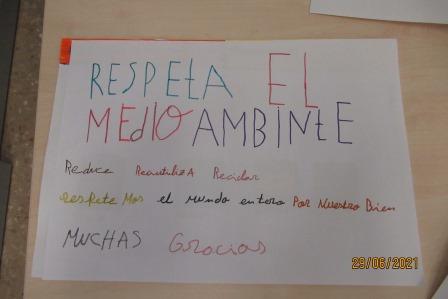 RESPEtA EL
MEdIO AMBINtE
Reduce ReautilizA Reciclar
respete Mos el mundo entoro Por Nuestro Bien
MUCHAS Gracias
29/06/2021